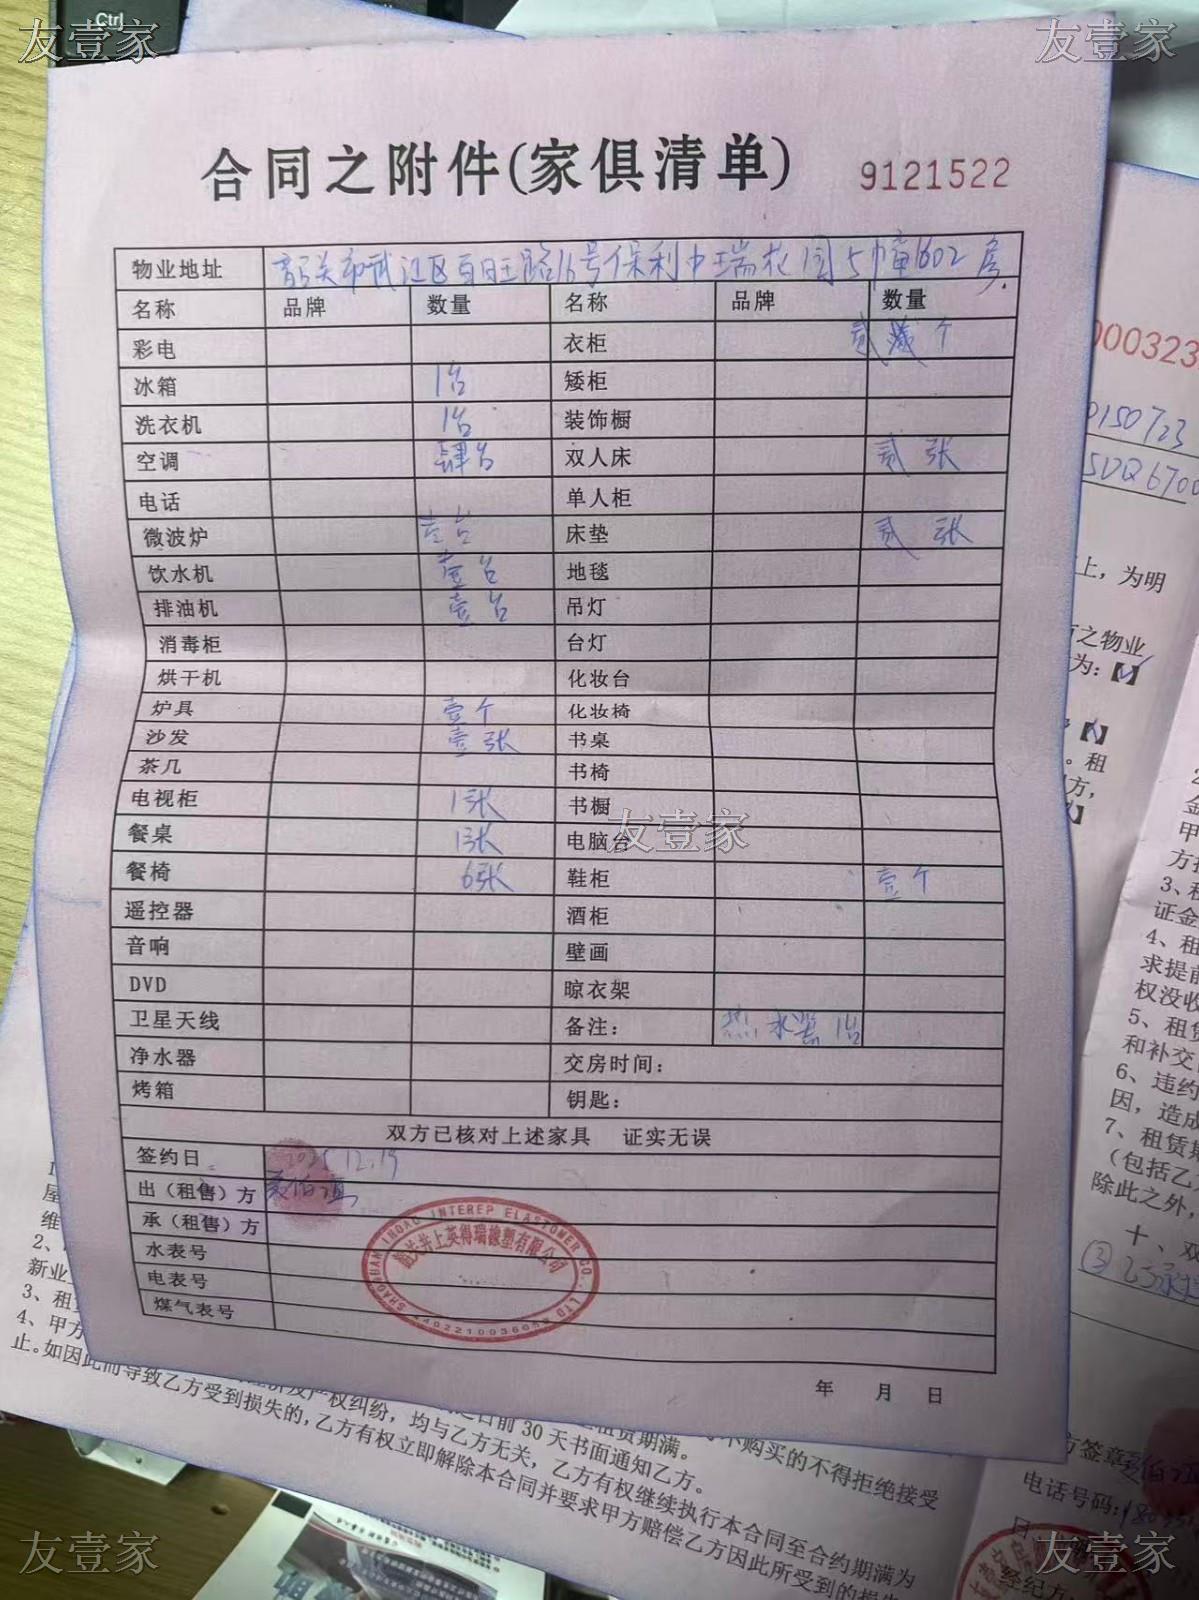 友壹家
Ctrl
友壹家
合同之附件(家俱清单)
9121522
物业地址 韶关市武江区百旺路16号保利中瑞花园5幢1602房.
名称 品牌 数量 名称 品牌 数量
彩电 衣柜 贰 个
冰箱 1台 矮柜
洗衣机 1台 装饰橱
空调 肆台 双人床 贰张
电话 单人柜
微波炉 壹台 床垫 贰张
饮水机 壹台 地毯
排油机 壹台 吊灯
消毒柜 台灯
烘干机 化妆台
炉具 壹个 化妆椅
沙发 壹张 书桌
茶几 书椅
电视柜 1张 书橱
友壹家
餐桌 1张 电脑台
餐椅 6张 鞋柜 壹个
遥控器 酒柜
音响 壁画
DVD 晾衣架
卫星天线 备注: 热水器1台
净水器 交房时间:
烤箱 钥匙:
双方已核对上述家具 证实无误
签约日 2025.12.19
出（租售）方
承（租售）方
水表号
电表号
煤气表号
SHAOGUAN INOAC INTEREP ELASTOMER CO., LTD
韶关井上英得瑞橡塑有限公司
年 月 日
000323
0150723
SDQ6700
上，为明
之物业
为:【√】
【√】
。租
方，
金
甲
方
3、租
证金
4、租
求提前
权没收
5、租赁
和补交
6、违约
因，造成
7、租赁期
（包括乙
除此之外，
十、双
③乙承
屋
维
2、
新业
3、租
4、甲方
天书面通知乙方。
不购买的不得拒绝接受
权纠纷，均与乙方无关，乙方有权继续执行本合同至合约期满为
止。如因此而导致乙方受到损失的，乙方有权立即解除本合同并要求甲方赔偿乙方因此所受到的损失
方签章
电话号码:
经纪方
友壹家
友壹家